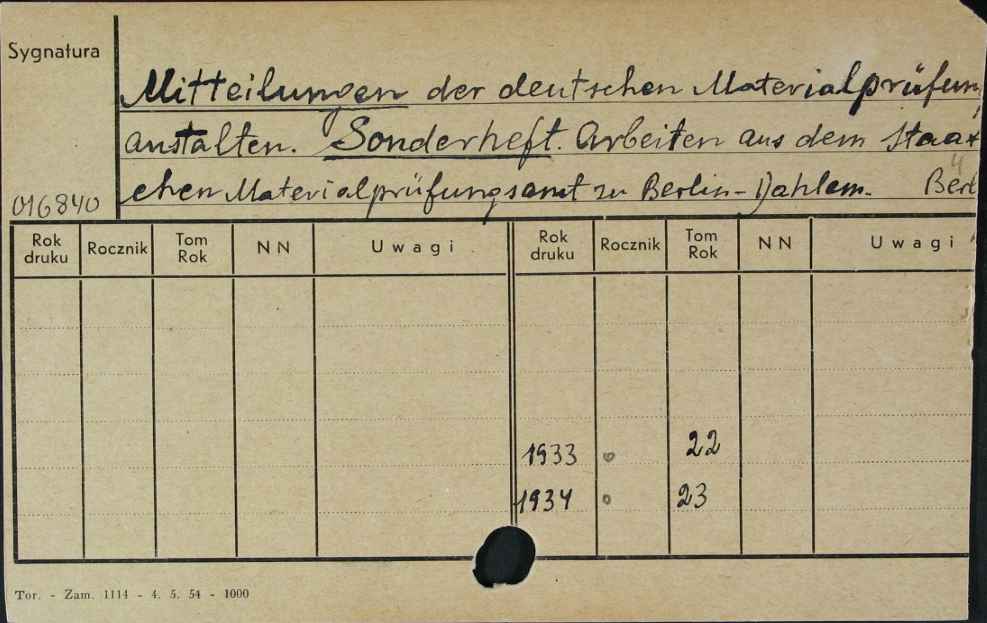 Sygnatura
Mitteilungen der deutschen Materialprüfun
anstalten. Sonderheft. Arbeiten aus dem Staat
chen Materialprüfungsamt zu Berlin-Dahlem. Berl
016840
Rok druku Rocznik Tom Rok NN Uwagi Rok druku Rocznik Tom Rok NN Uwagi
1933 22
1934 23
Tor. - Zam. 1114 - 4. 5. 54 - 1000